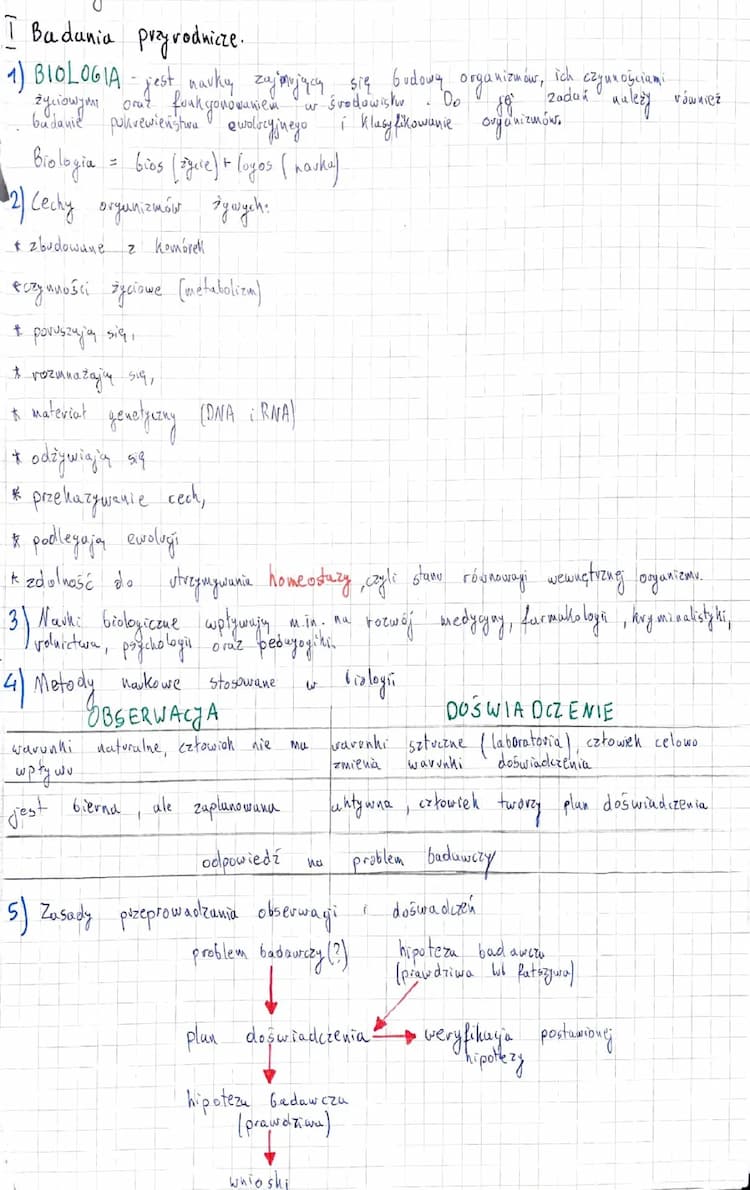 I Badania przyrodnicze.
1) BIOLOGIA - jest nauką zajmującą się budową organizmów, ich czynnościami
życiowymi oraz funkcjonowaniem w środowisku. Do jej zadań należy również
badanie pokrewieństwa ewolucyjnego i klasyfikowanie organizmów.
Biologia = bios (życie) + logos (nauka)
2) Cechy organizmów żywych:
* zbudowane z komórek
* czynności życiowe (metabolizm)
* poruszają się,
* rozmnażają się,
* materiał genetyczny (DNA i RNA)
* odżywiają się
* przekazywanie cech,
* podlegają ewolucji
* zdolność do utrzymywania homeostazy, czyli stanu równowagi wewnętrznej organizmu.
3) Nauki biologiczne wpływają m.in. na rozwój medycyny, farmakologii, kryminalistyki,
rolnictwa, psychologii oraz pedagogiki.
4) Metody naukowe stosowane w biologii
OBSERWACJA DOŚWIADCZENIE
warunki naturalne, człowiek nie ma warunki sztuczne (laboratoria), człowiek celowo
wpływu zmienia warunki doświadczenia
jest bierna, ale zaplanowana aktywna, człowiek tworzy plan doświadczenia
odpowiedź na problem badawczy
5) Zasady przeprowadzania obserwacji i doświadczeń
problem badawczy (?) hipoteza badawcza
(prawdziwa lub fałszywa)
plan doświadczenia weryfikacja postawionej
hipotezy
hipoteza badawcza
(prawdziwa)
wnioski